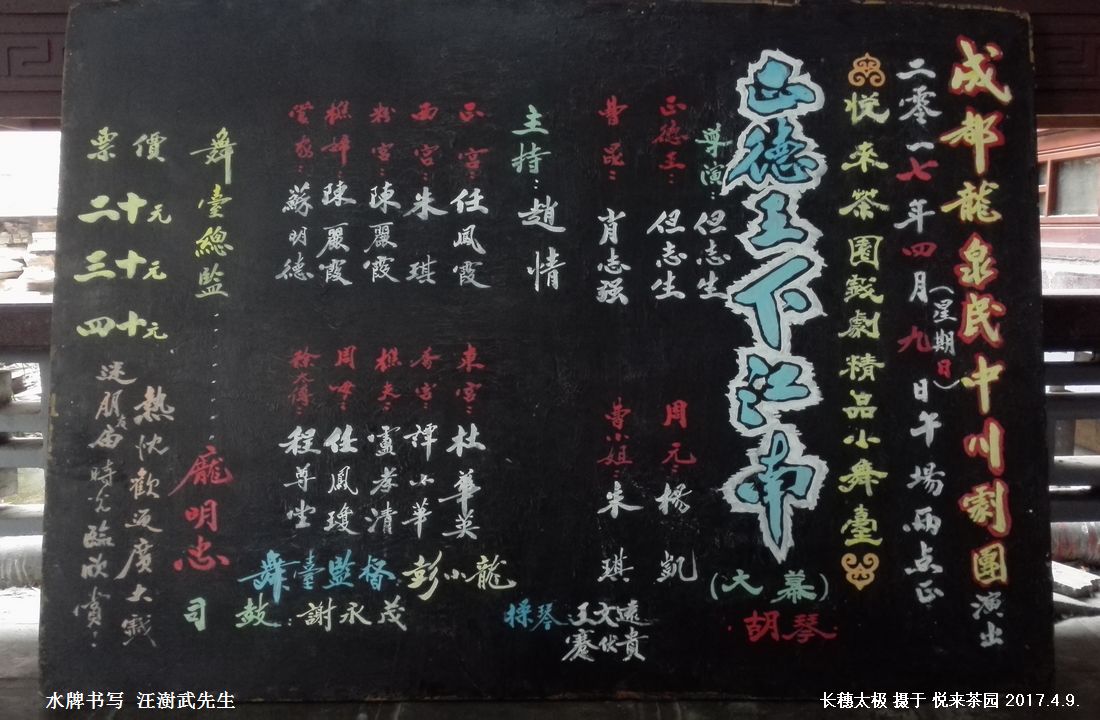 成都龍泉民中川劇團演出
二零一七年四月九日午場兩点正
(星期日)
悦來茶園戲劇精品小舞臺
正德王下江南
(大幕)
胡琴
導演:但志生
正德王:但志生
周元:楊凱
曹昆:肖志强
曹小姐:朱琪
主持:趙情
正宫:任鳳霞
東宫:杜華英
西宫:朱琪
香宫:譚小華
粉宫:陳麗霞
樵夫:盧孝清
樵婦:陳麗霞
周母:任鳳瓊
管家:蘇明德
徐太傅:程尊堂
操琴:王文遠
蹇代貴
舞臺監督:彭小龍
司鼓:謝永茂
舞臺總監……龐明忠
票價
二十元
三十元
四十元
熱忱歡迎廣大戲
迷朋友届時光臨欣賞!
水牌书写 汪澍武先生
长穗太极 摄于 悦来茶园 2017.4.9.